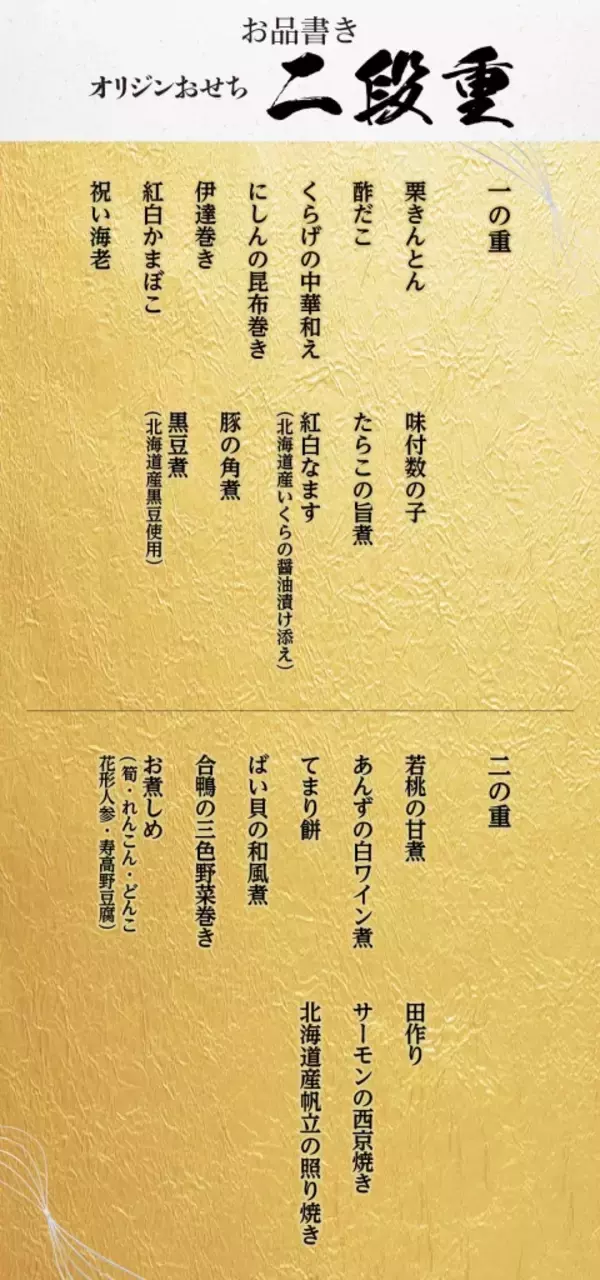 お品書き
オリジンおせち 二段重
一の重
栗きんとん
酢だこ
くらげの中華和え
にしんの昆布巻き
伊達巻き
紅白かまぼこ
祝い海老
味付数の子
たらこの旨煮
紅白なます
(北海道産いくらの醤油漬け添え)
豚の角煮
黒豆煮
(北海道産黒豆使用)
二の重
若桃の甘煮
あんずの白ワイン煮
てまり餅
ばい貝の和風煮
合鴨の三色野菜巻き
お煮しめ
(筍・れんこん・どんこ
花形人参・寿高野豆腐)
田作り
サーモンの西京焼き
北海道産帆立の照り焼き